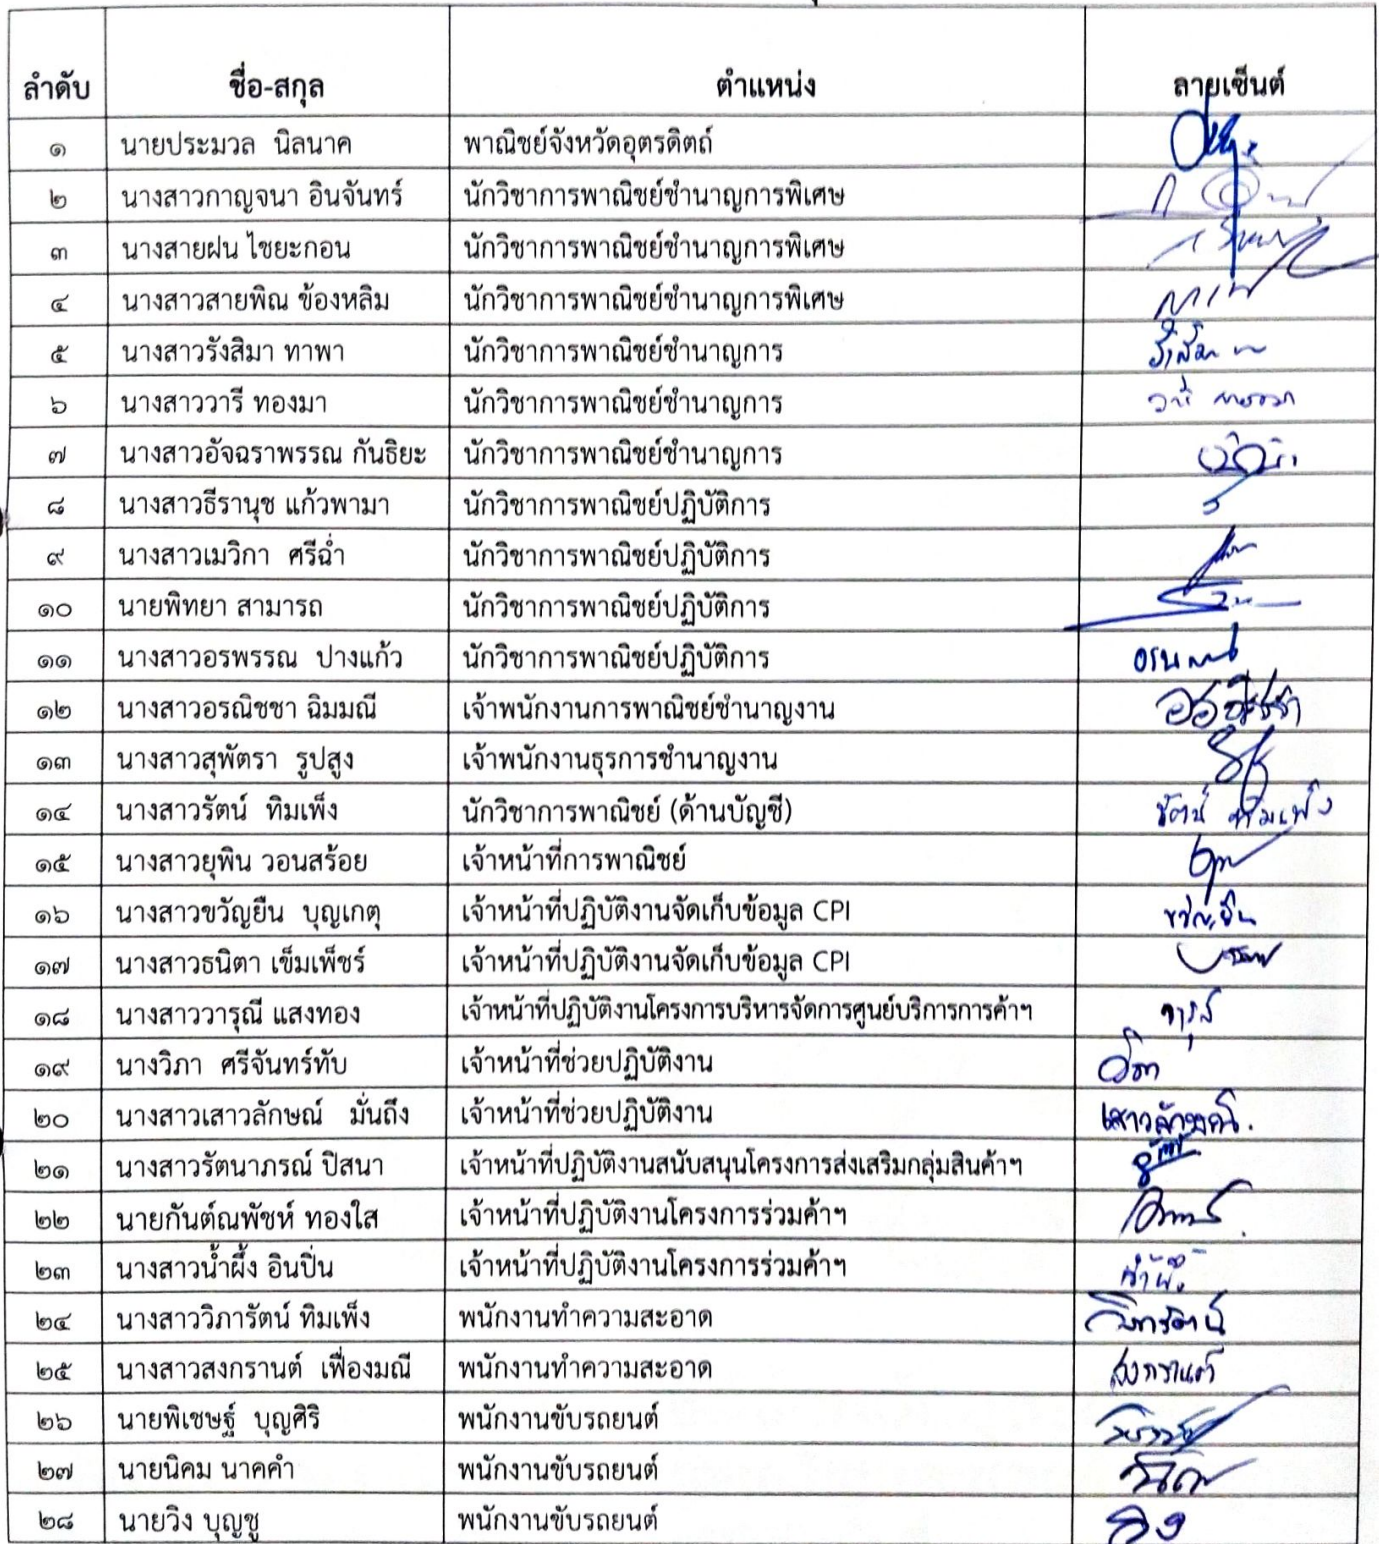 ลำดับ ชื่อ-สกุล ตำแหน่ง ลายเซ็นต์
๑ นายประมวล นิลนาค พาณิชย์จังหวัดอุตรดิตถ์
๒ นางสาวกาญจนา อินจันทร์ นักวิชาการพาณิชย์ชำนาญการพิเศษ
๓ นางสายฝน ไชยะกอน นักวิชาการพาณิชย์ชำนาญการพิเศษ
๔ นางสาวสายพิณ ข้องหลิม นักวิชาการพาณิชย์ชำนาญการพิเศษ
๕ นางสาวรังสิมา ทาพา นักวิชาการพาณิชย์ชำนาญการ
๖ นางสาววารี ทองมา นักวิชาการพาณิชย์ชำนาญการ
๗ นางสาวอัจฉราพรรณ กันธิยะ นักวิชาการพาณิชย์ชำนาญการ
๘ นางสาวธีรานุช แก้วพามา นักวิชาการพาณิชย์ปฏิบัติการ
๙ นางสาวเมวิกา ศรีฉ่ำ นักวิชาการพาณิชย์ปฏิบัติการ
๑๐ นายพิทยา สามารถ นักวิชาการพาณิชย์ปฏิบัติการ
๑๑ นางสาวอรพรรณ ปางแก้ว นักวิชาการพาณิชย์ปฏิบัติการ
๑๒ นางสาวอรณิชชา ฉิมมณี เจ้าพนักงานการพาณิชย์ชำนาญงาน อรณิชชา
๑๓ นางสาวสุพัตรา รูปสูง เจ้าพนักงานธุรการชำนาญงาน
๑๔ นางสาวรัตน์ ทิมเพ็ง นักวิชาการพาณิชย์ (ด้านบัญชี) รัตน์ ทิมเพ็ง
๑๕ นางสาวยุพิน วอนสร้อย เจ้าหน้าที่การพาณิชย์
๑๖ นางสาวขวัญยืน บุญเกตุ เจ้าหน้าที่ปฏิบัติงานจัดเก็บข้อมูล CPI ขวัญยืน
๑๗ นางสาวธนิตา เข็มเพ็ชร์ เจ้าหน้าที่ปฏิบัติงานจัดเก็บข้อมูล CPI
๑๘ นางสาววารุณี แสงทอง เจ้าหน้าที่ปฏิบัติงานโครงการบริหารจัดการศูนย์บริการการค้าฯ
๑๙ นางวิภา ศรีจันทร์ทับ เจ้าหน้าที่ช่วยปฏิบัติงาน วิภา
๒๐ นางสาวเสาวลักษณ์ มั่นถึง เจ้าหน้าที่ช่วยปฏิบัติงาน เสาวลักษณ์
๒๑ นางสาวรัตนาภรณ์ ปิสนา เจ้าหน้าที่ปฏิบัติงานสนับสนุนโครงการส่งเสริมกลุ่มสินค้าฯ
๒๒ นายกันต์ณพัชห์ ทองใส เจ้าหน้าที่ปฏิบัติงานโครงการร่วมค้าฯ
๒๓ นางสาวน้ำผึ้ง อินปิ่น เจ้าหน้าที่ปฏิบัติงานโครงการร่วมค้าฯ น้ำผึ้ง
๒๔ นางสาววิภารัตน์ ทิมเพ็ง พนักงานทำความสะอาด วิภารัตน์
๒๕ นางสาวสงกรานต์ เฟื่องมณี พนักงานทำความสะอาด สงกรานต์
๒๖ นายพิเชษฐ์ บุญศิริ พนักงานขับรถยนต์
๒๗ นายนิคม นาคคำ พนักงานขับรถยนต์
๒๘ นายวิง บุญชู พนักงานขับรถยนต์ วิง